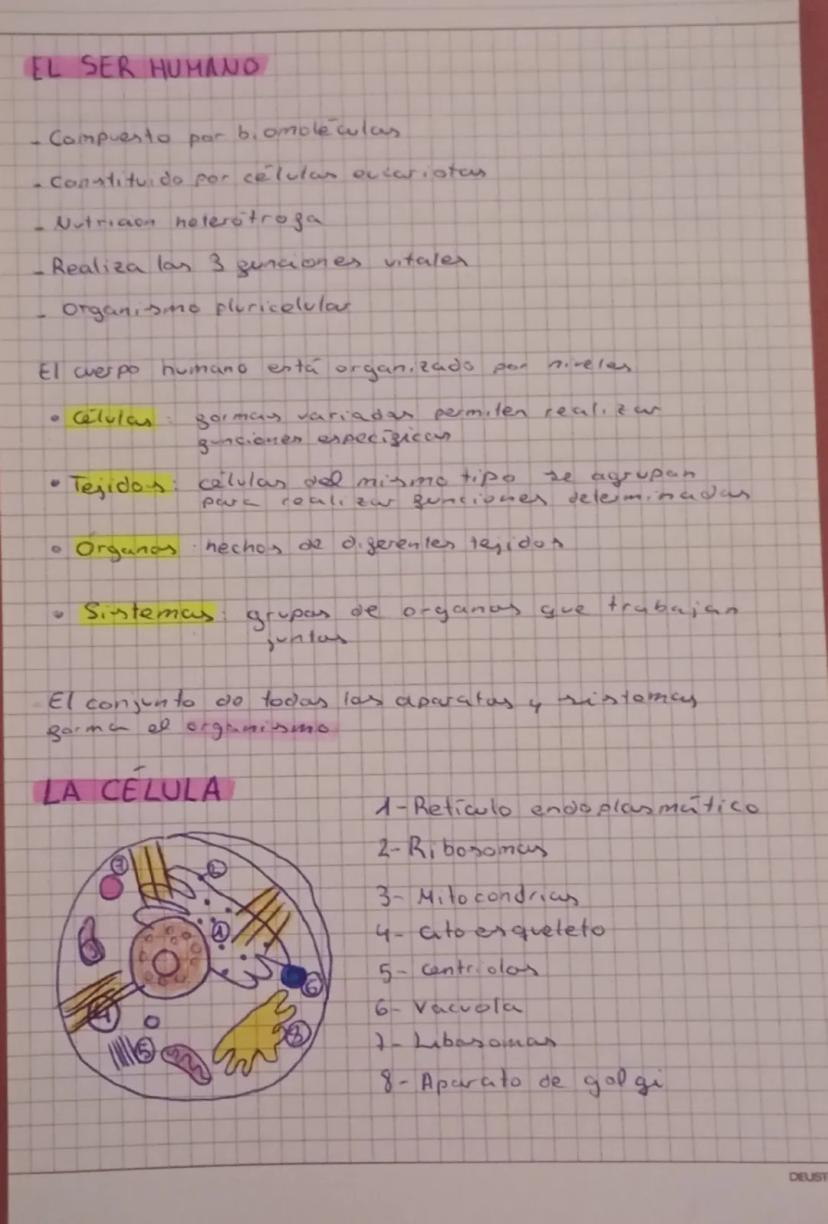 EL SER HUMANO
- Compuesto por biomoléculas
- Constituido por células eucariotas
- Nutrición heterótrofa
- Realiza las 3 funciones vitales
- Organismo pluricelular
El cuerpo humano está organizado por niveles
• Células: formas variadas permiten realizar
funciones específicas
• Tejidos: células del mismo tipo se agrupan
para realizar funciones determinadas
• Organos: hechos de diferentes tejidos
• Sistemas: grupos de organos que trabajan
juntos
El conjunto de todos los aparatos y sistemas
forma el organismo
LA CÉLULA
1-Retículo endoplasmático
2-Ribosomas
3- Mitocondrias
4- citoesqueleto
5- centriolos
6- Vacuola
7- Libosomas
8- Aparato de golgi
7
2
1
3
6
4
5
8
DEUST